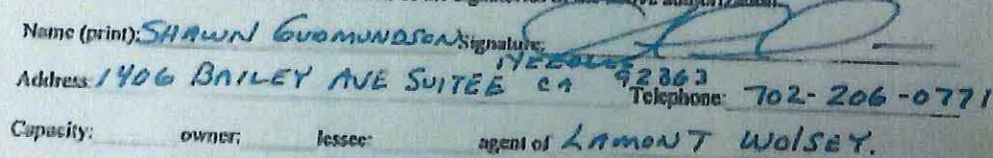 Name (print): SHAWN GUDMUNDSON Signature:
NEEDLES
Address: 1406 BAILEY AVE SUITE E CA 92363 Telephone: 702-206-0771
Capacity: owner; lessee; agent of LAMONT WOlSEY.